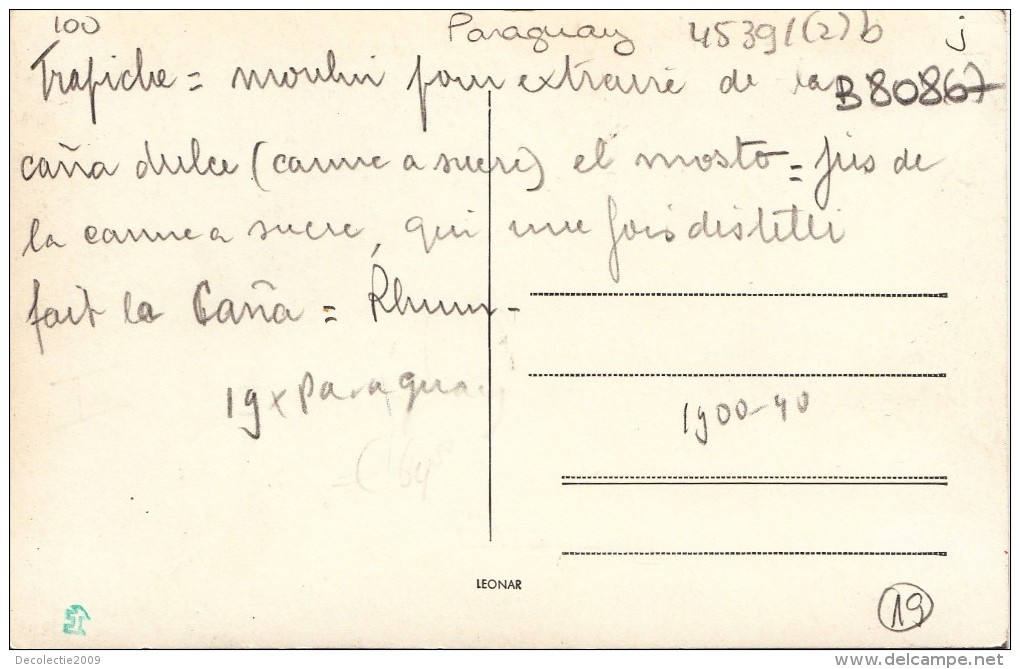 100 Paraguay 45391(2)b j
Trapiche = moulin pour extraire de la B80867
caña dulce (canne a sucre) el mosto = jus de
la canne a sucre, qui une fois distillé
fait la Caña = Rhum -
19x Paraguay
1900-40
LEONAR
19
Decolectie2009
www.delcampe.net